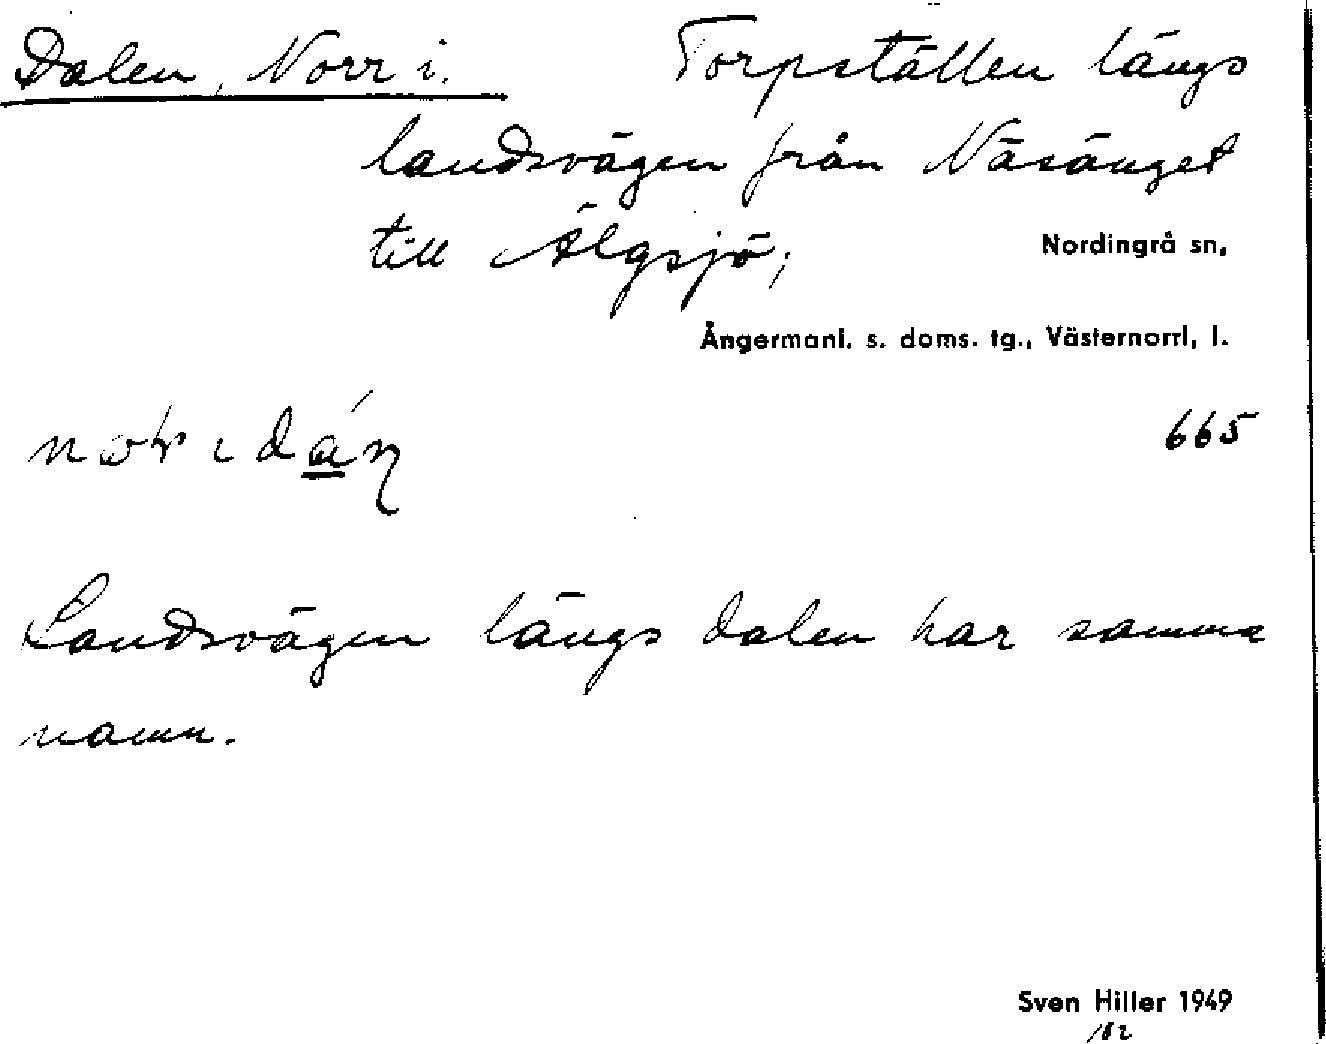 Dalen, Norr i. Torpställen längs
landsvägen från Näsänget
till Älgsjö; Nordingrå sn,
Ångermanl. s. doms. tg., Västernorrl, l.
665
Landsvägen längs dalen har samma
namn.
Sven Hiller 1949
182